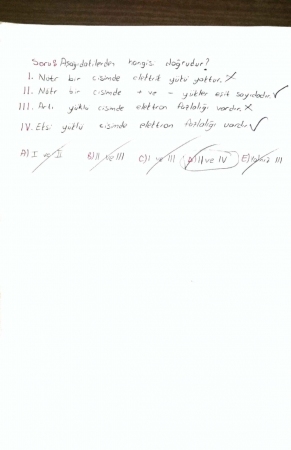 Soru: Aşağıdakilerden hangisi doğrudur?
I. Nötr bir cisimde elektrik yükü yoktur. X
II. Nötr bir cisimde + ve - yükler eşit sayıdadır. ✓
III. Artı yüklü cisimde elektron fazlalığı vardır. X
IV. Eksi yüklü cisimde elektron fazlalığı vardır ✓
A) I ve II B) II ve III C) I ve III D) II ve IV E) III